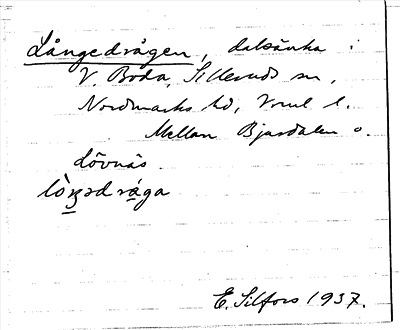 Långedrågen, dalsänka i
V. Boda, Silleruds sn,
Nordmarks hd, Vrml l.
Mellan Bjurdalen o.
Lövnäs
lòŋədrága
E. Silfors 1937.